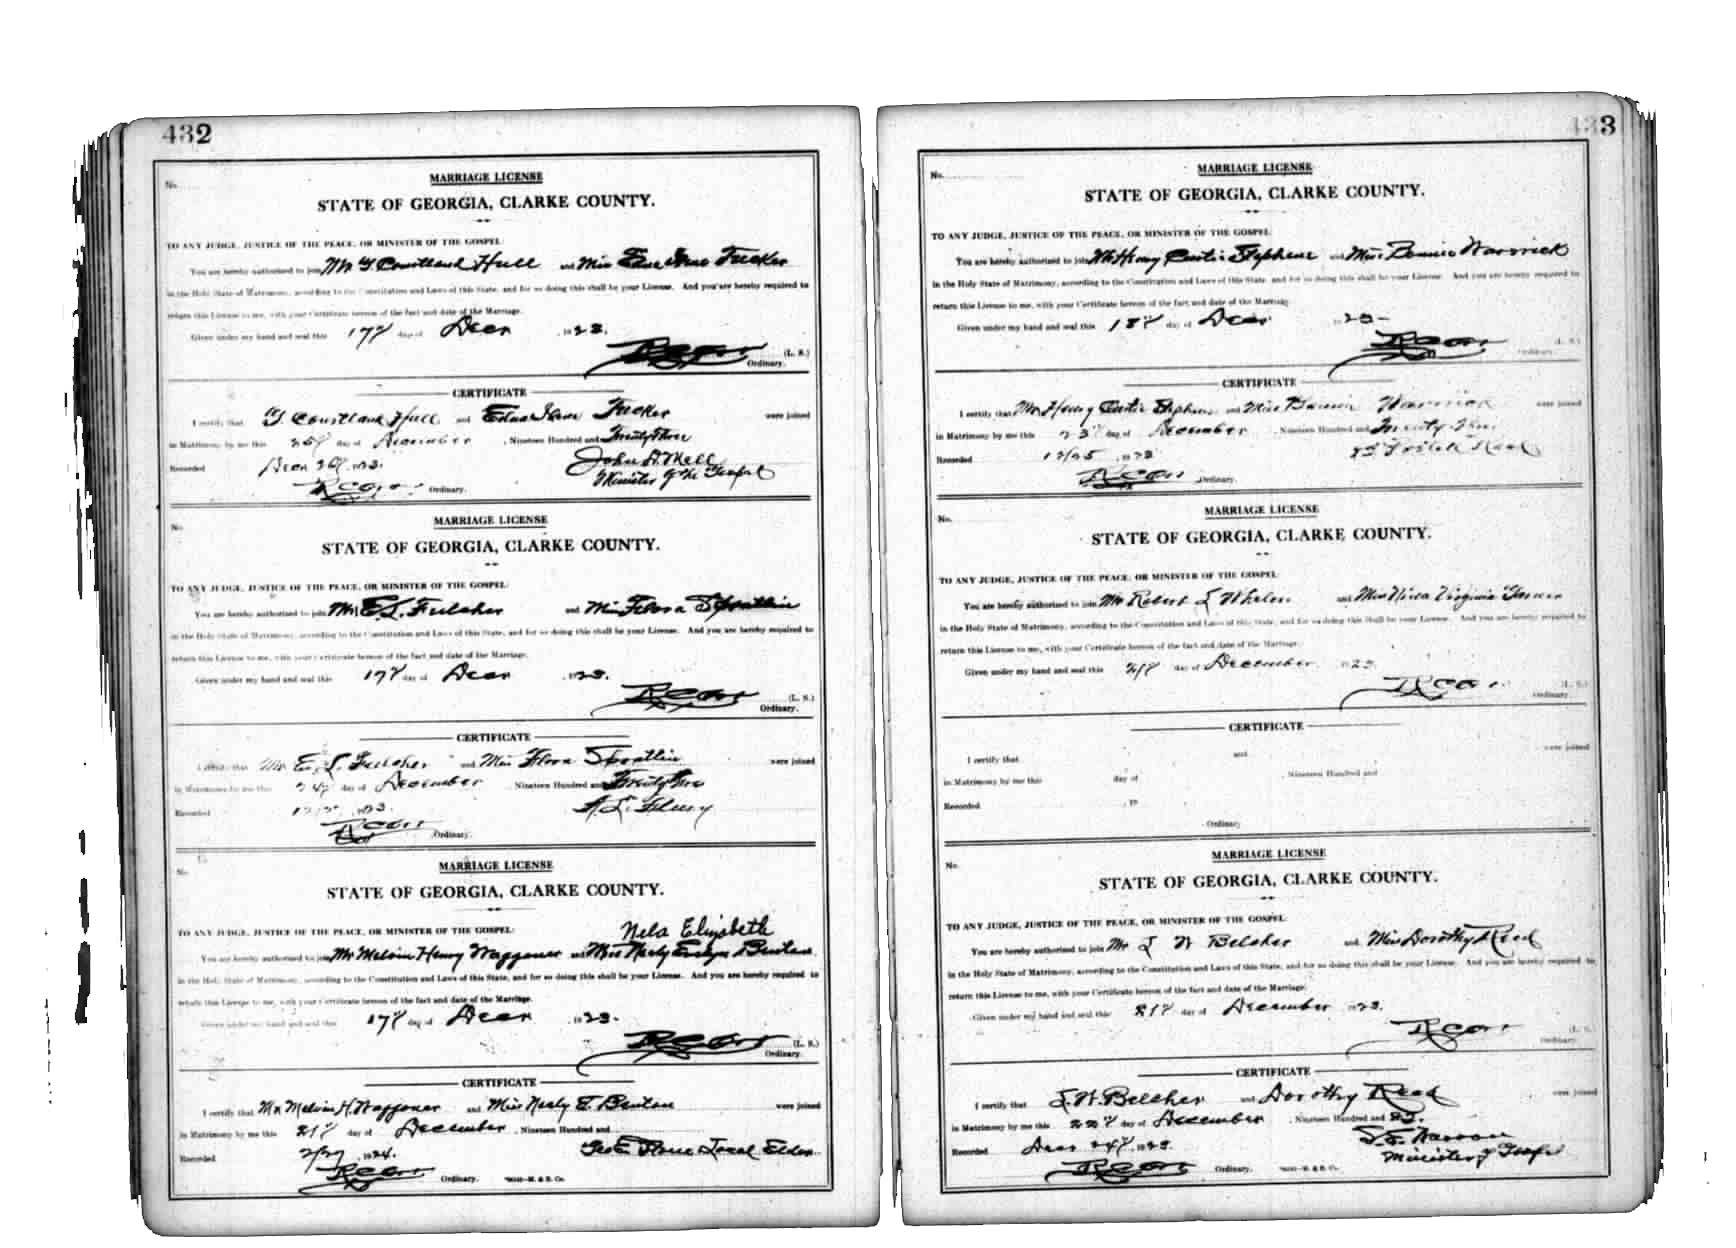 432
No.
MARRIAGE LICENSE
STATE OF GEORGIA, CLARKE COUNTY.
TO ANY JUDGE, JUSTICE OF THE PEACE, OR MINISTER OF THE GOSPEL:
You are hereby authorized to join Mr. T Courtland Hull and Miss Edna Irene Tucker
in the Holy State of Matrimony, according to the Constitution and Laws of this State, and for so doing this shall be your License. And you are hereby required to
return this License to me, with your Certificate hereon of the fact and date of the Marriage.
Given under my hand and seal this 17th day of Decr 1923.
(L. S.)
Ordinary.
CERTIFICATE
I certify that T. Courtland Hull and Edna Irene Tucker were joined
in Matrimony by me this 25th day of December, Nineteen Hundred and Twenty Three
Recorded Decr 1923. John D. Mell
Minister of the Gospel
Ordinary.
No.
MARRIAGE LICENSE
STATE OF GEORGIA, CLARKE COUNTY.
TO ANY JUDGE, JUSTICE OF THE PEACE, OR MINISTER OF THE GOSPEL:
You are hereby authorized to join Mr. E. L. Fulcher and Miss Flora Spratlin
in the Holy State of Matrimony, according to the Constitution and Laws of this State, and for so doing this shall be your License. And you are hereby required to
return this License to me, with your Certificate hereon of the fact and date of the Marriage.
Given under my hand and seal this 17th day of Decr 1923.
(L. S.)
Ordinary.
CERTIFICATE
I certify that Mr. E. L. Fulcher and Miss Flora Spratlin were joined
in Matrimony by me this 24th day of December, Nineteen Hundred and Twenty Three
Recorded 1923.
Ordinary.
No.
MARRIAGE LICENSE
STATE OF GEORGIA, CLARKE COUNTY.
TO ANY JUDGE, JUSTICE OF THE PEACE, OR MINISTER OF THE GOSPEL:
Nela Elizabeth
You are hereby authorized to join Mr Melvin Henry Waggoner and Miss Nealy Evelyn Benton
in the Holy State of Matrimony, according to the Constitution and Laws of this State, and for so doing this shall be your License. And you are hereby required to
return this License to me, with your Certificate hereon of the fact and date of the Marriage.
Given under my hand and seal this 17th day of Decr 1923.
(L. S.)
Ordinary.
CERTIFICATE
I certify that Mr Melvin H. Waggoner and Miss Nealy E. Benton were joined
in Matrimony by me this 21st day of December, Nineteen Hundred and
Recorded 2/27 1924. Local Elder
Ordinary.
433
No.
MARRIAGE LICENSE
STATE OF GEORGIA, CLARKE COUNTY.
TO ANY JUDGE, JUSTICE OF THE PEACE, OR MINISTER OF THE GOSPEL:
You are hereby authorized to join Mr Henry Curtis Stephens and Miss Bonnie Warrick
in the Holy State of Matrimony, according to the Constitution and Laws of this State, and for so doing this shall be your License. And you are hereby required to
return this License to me, with your Certificate hereon of the fact and date of the Marriage.
Given under my hand and seal this 18th day of Decr 1923
(L. S.)
Ordinary.
CERTIFICATE
I certify that Mr Henry Curtis Stephens and Miss Bonnie Warrick were joined
in Matrimony by me this 23rd day of December, Nineteen Hundred and Twenty Three
Recorded 12/25 1923
Ordinary.
No.
MARRIAGE LICENSE
STATE OF GEORGIA, CLARKE COUNTY.
TO ANY JUDGE, JUSTICE OF THE PEACE, OR MINISTER OF THE GOSPEL:
You are hereby authorized to join Mr Robert L Whelon and Miss Virginia
in the Holy State of Matrimony, according to the Constitution and Laws of this State, and for so doing this shall be your License. And you are hereby required to
return this License to me, with your Certificate hereon of the fact and date of the Marriage.
Given under my hand and seal this 21st day of December 1923.
(L. S.)
Ordinary.
CERTIFICATE
I certify that and were joined
in Matrimony by me this day of Nineteen Hundred and
Recorded 19
Ordinary
No.
MARRIAGE LICENSE
STATE OF GEORGIA, CLARKE COUNTY.
TO ANY JUDGE, JUSTICE OF THE PEACE, OR MINISTER OF THE GOSPEL:
You are hereby authorized to join Mr L W Belcher and Miss Dorothy Reed
in the Holy State of Matrimony, according to the Constitution and Laws of this State, and for so doing this shall be your License. And you are hereby required to
return this License to me, with your Certificate hereon of the fact and date of the Marriage.
Given under my hand and seal this 21st day of December 1923.
(L. S.)
Ordinary.
CERTIFICATE
I certify that L. W. Belcher and Dorothy Reed were joined
in Matrimony by me this 22nd day of December, Nineteen Hundred and 23.
Recorded Decr 24th 1923.
Minister of Gospel
Ordinary.